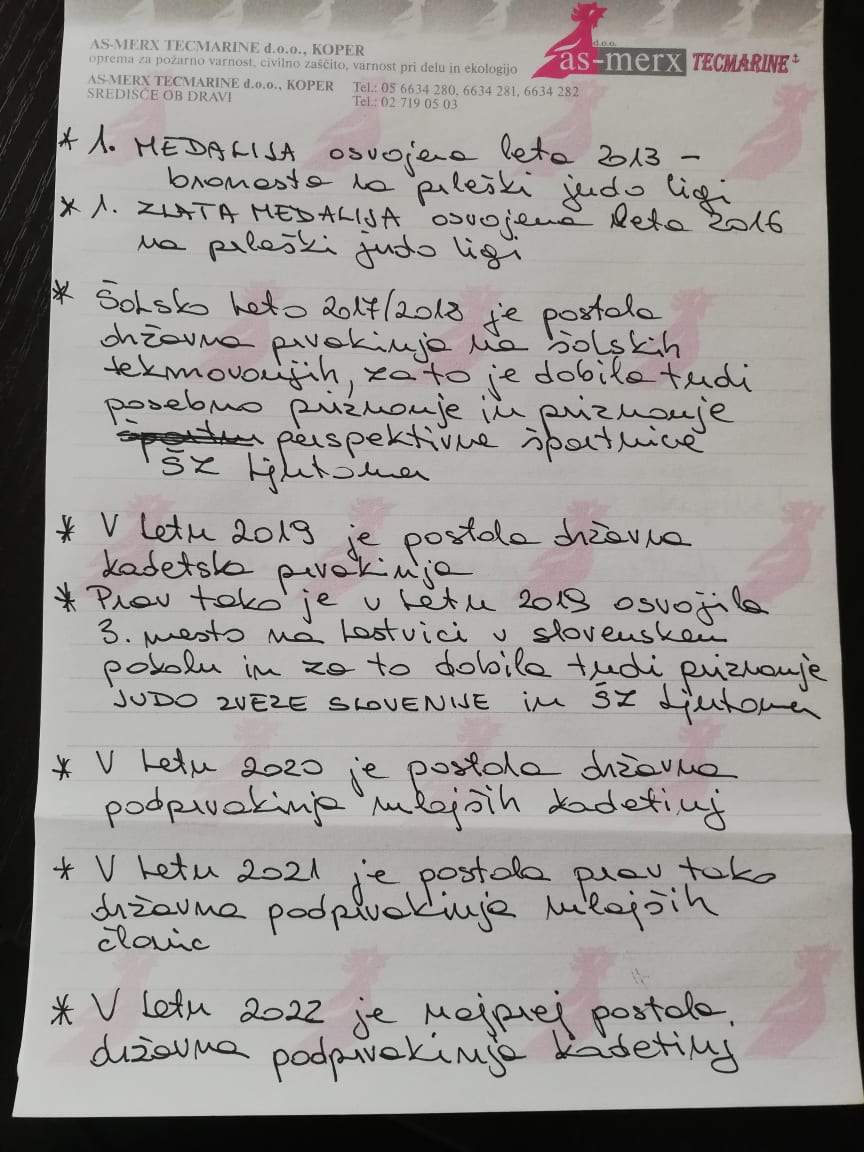 AS-MERX TECMARINE d.o.o., KOPER
oprema za požarno varnost, civilno zaščito, varnost pri delu in ekologijo
AS-MERX TECMARINE d.o.o., KOPER Tel.: 05 6634 280, 6634 281, 6634 282
SREDIŠČE OB DRAVI Tel.: 02 719 05 03
d.o.o.
as-merx TECMARINE
* 1. MEDALIJA osvojena leta 2013 -
bronasta na prleški judo ligi
* 1. ZLATA MEDALIJA osvojena leta 2016
na prleški judo ligi
* Šolsko leto 2017/2018 je postala
državna prvakinja na šolskih
tekmovanjih, za to je dobila tudi
posebno priznanje in priznanje
perspektivne športnice
ŠZ Ljutomer
* V letu 2019 je postala državna
kadetska prvakinja
* Prav tako je v letu 2019 osvojila
3. mesto na lestvici v slovenskem
pokalu in za to dobila tudi priznanje
JUDO ZVEZE SLOVENIJE in ŠZ Ljutomer
* V letu 2020 je postala državna
podprvakinja mlajših kadetinj
* V letu 2021 je postala prav tako
državna podprvakinja mlajših
članic
* V letu 2022 je najprej postala
državna podprvakinja kadetinj